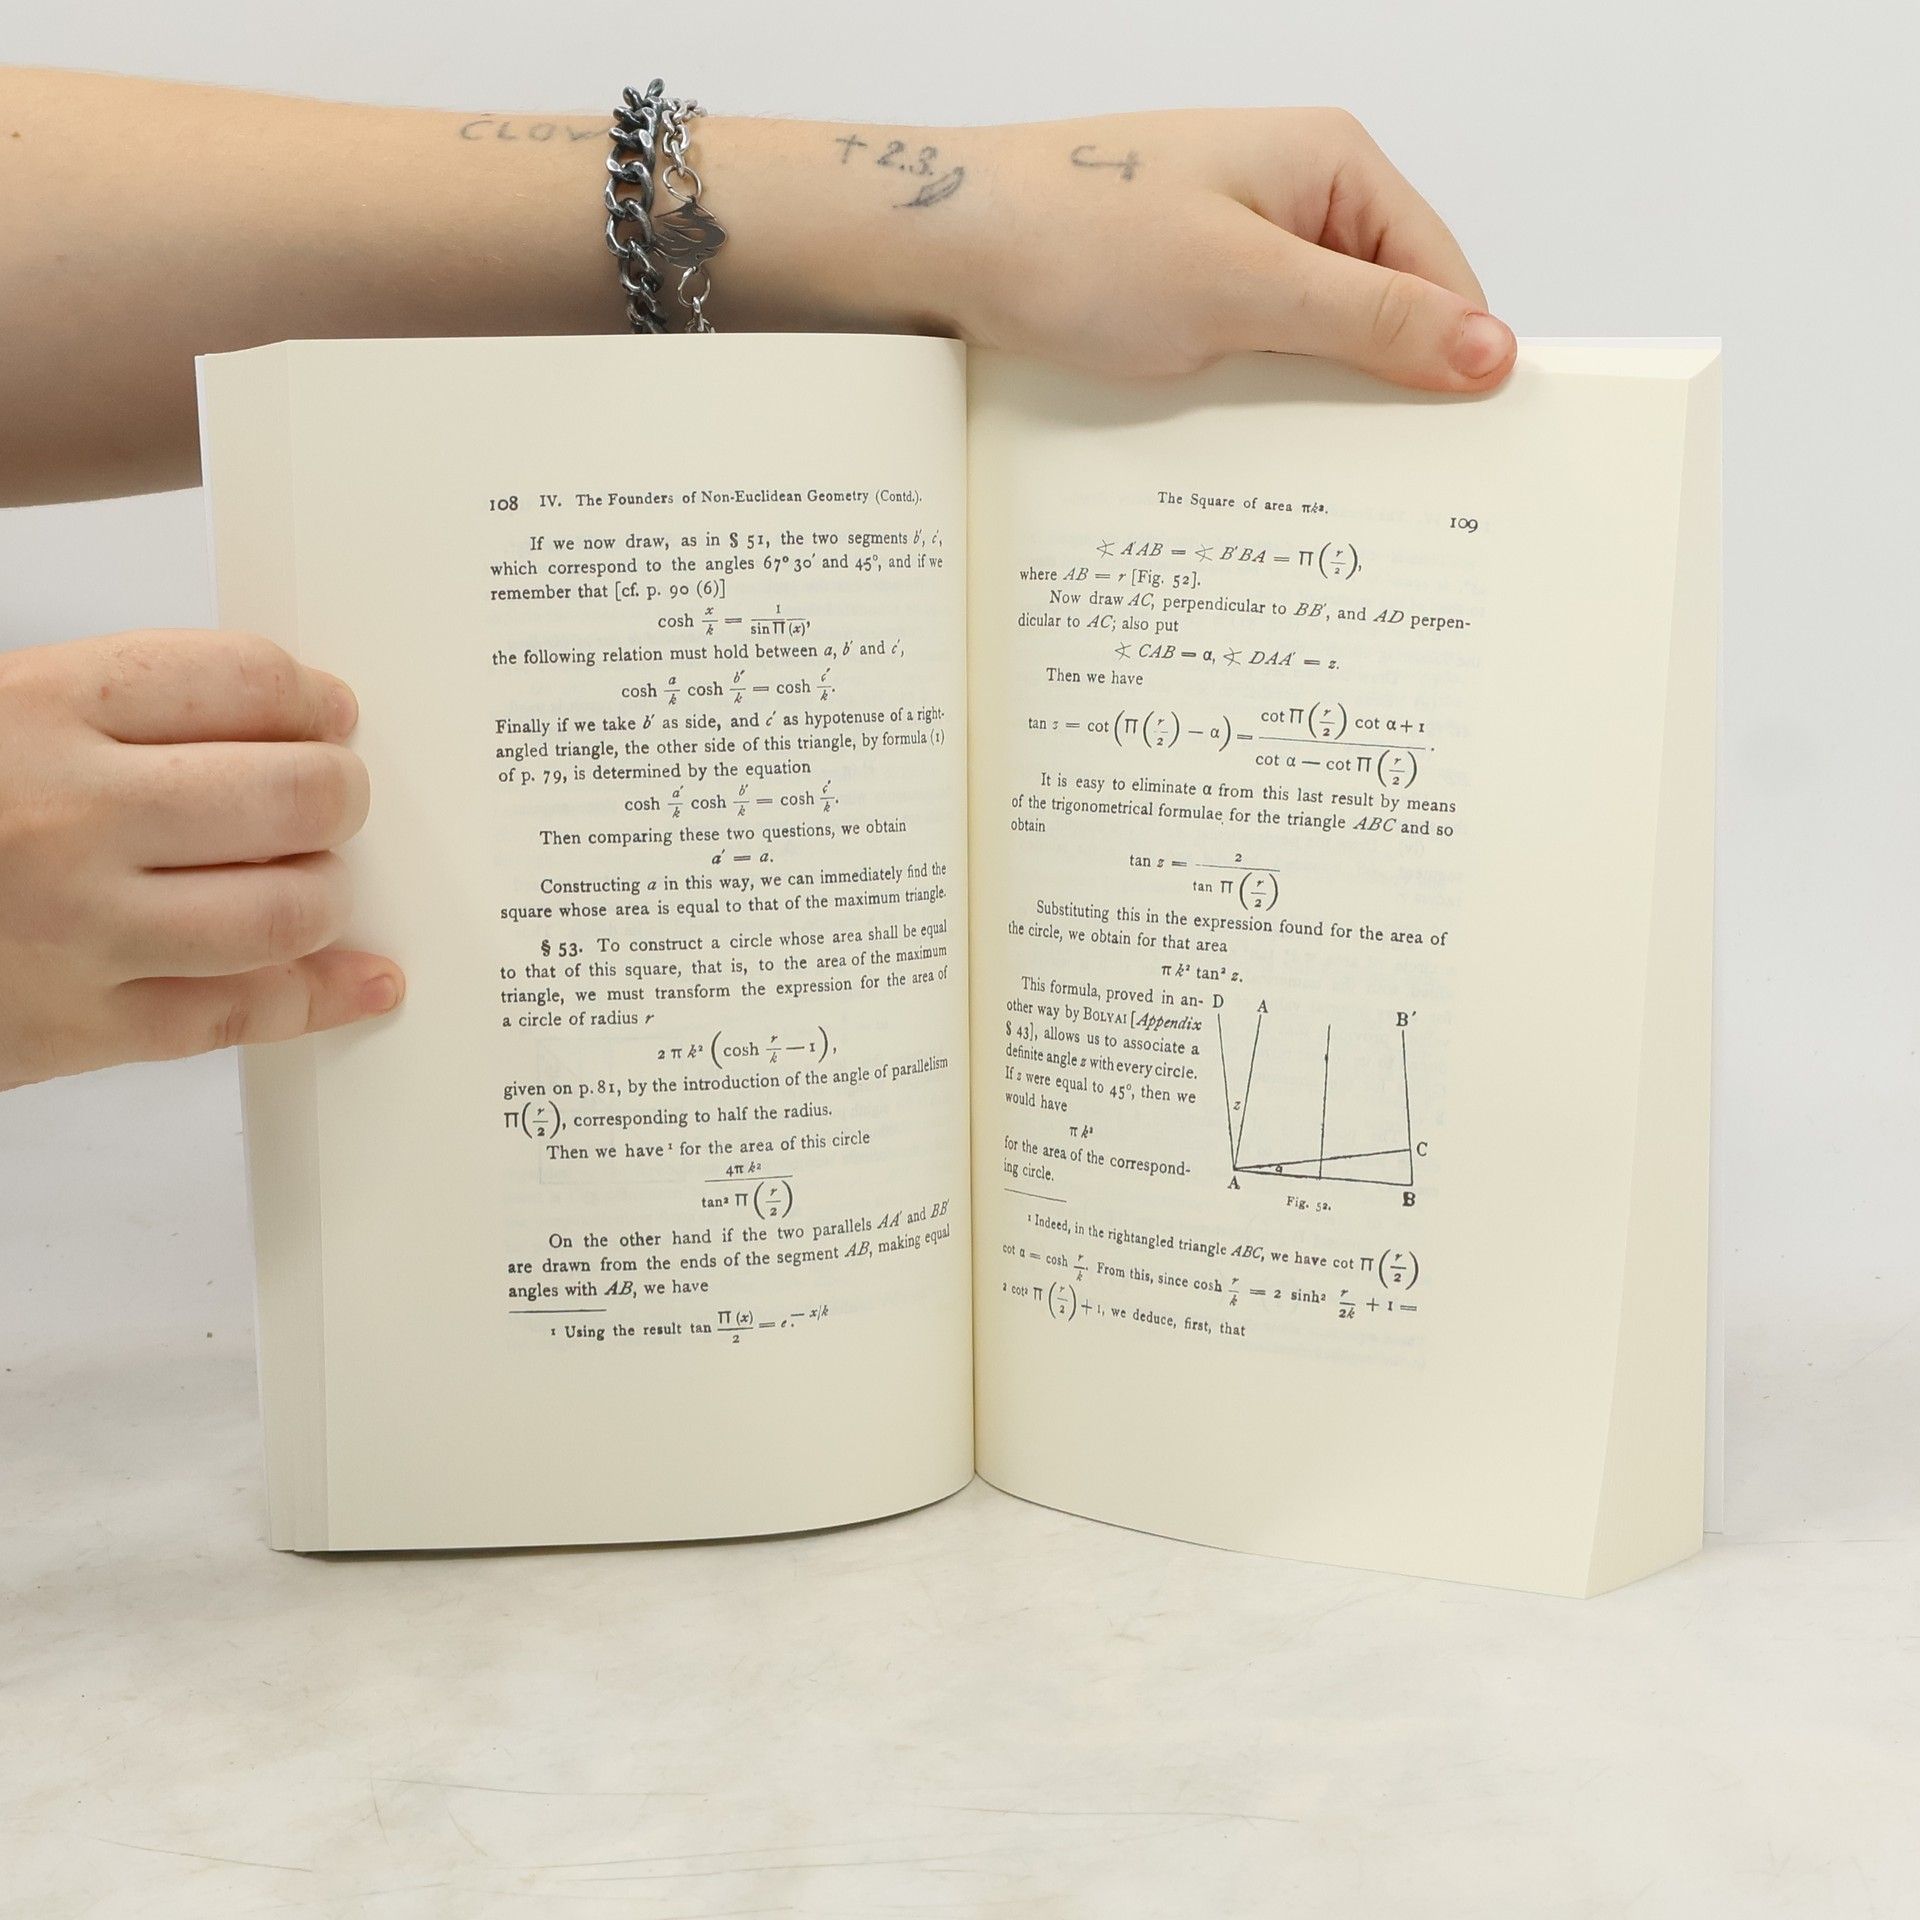 CLOW
+ 2.3.
108 IV. The Founders of Non-Euclidean Geometry (Contd.).
If we now draw, as in § 51, the two segments b′, c′,
which correspond to the angles 67° 30′ and 45°, and if we
remember that [cf. p. 90 (6)]
cosh x/k = 1/sin Π(x)′
the following relation must hold between a, b′ and c′,
cosh a/k cosh b′/k = cosh c′/k.
Finally if we take b′ as side, and c′ as hypotenuse of a right-
angled triangle, the other side of this triangle, by formula (1)
of p. 79, is determined by the equation
cosh a′/k cosh b′/k = cosh c′/k.
Then comparing these two questions, we obtain
a′ = a.
Constructing a in this way, we can immediately find the
square whose area is equal to that of the maximum triangle.
§ 53. To construct a circle whose area shall be equal
to that of this square, that is, to the area of the maximum
triangle, we must transform the expression for the area of
a circle of radius r
2 π k² (cosh r/k — 1),
given on p. 81, by the introduction of the angle of parallelism
Π(r/2), corresponding to half the radius.
Then we have ¹ for the area of this circle
4π k²/tan² Π(r/2)
On the other hand if the two parallels AA′ and BB′
are drawn from the ends of the segment AB, making equal
angles with AB, we have
¹ Using the result tan Π(x)/2 = e.— x/k
The Square of area πk².
109
∢ A′AB = ∢ B′BA = Π(r/2),
where AB = r [Fig. 52].
Now draw AC, perpendicular to BB′, and AD perpen-
dicular to AC; also put
∢ CAB = α, ∢ DAA′ = z.
Then we have
tan z = cot (Π(r/2) — α) = (cot Π(r/2) cot α + 1)/(cot α — cot Π(r/2)).
It is easy to eliminate α from this last result by means
of the trigonometrical formulae for the triangle ABC and so
obtain
tan z = 2/tan Π(r/2)
Substituting this in the expression found for the area of
the circle, we obtain for that area
π k² tan² z.
This formula, proved in an-
other way by BOLYAI [Appendix
§ 43], allows us to associate a
definite angle z with every circle.
If z were equal to 45°, then we
would have
π k²
for the area of the correspond-
ing circle.
D A B′
z
C
α
A B
Fig. 52.
¹ Indeed, in the rightangled triangle ABC, we have cot Π(r/2)
cot α = cosh r/k. From this, since cosh r/k = 2 sinh² r/2k + 1 =
2 cot² Π(r/2) + 1, we deduce, first, that